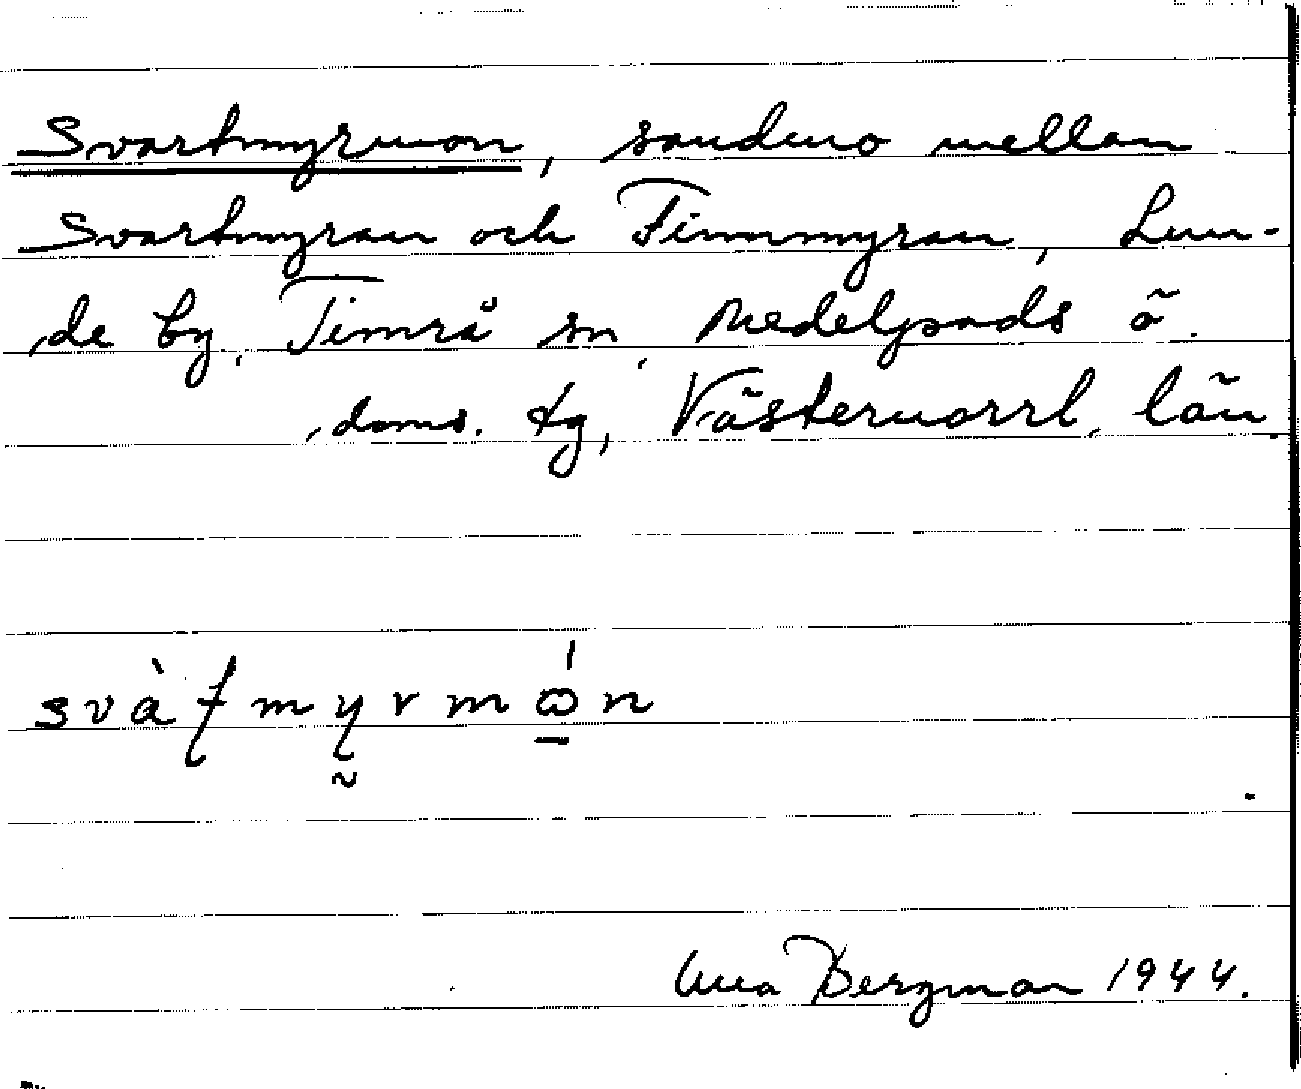 Svartmyrmon, sandmo mellan
Svartmyran och Finnmyran, Lun-
de by, Timrå sn, Medelpads ö.
doms. tg, Västernorrl. län.
Bergman 1944.